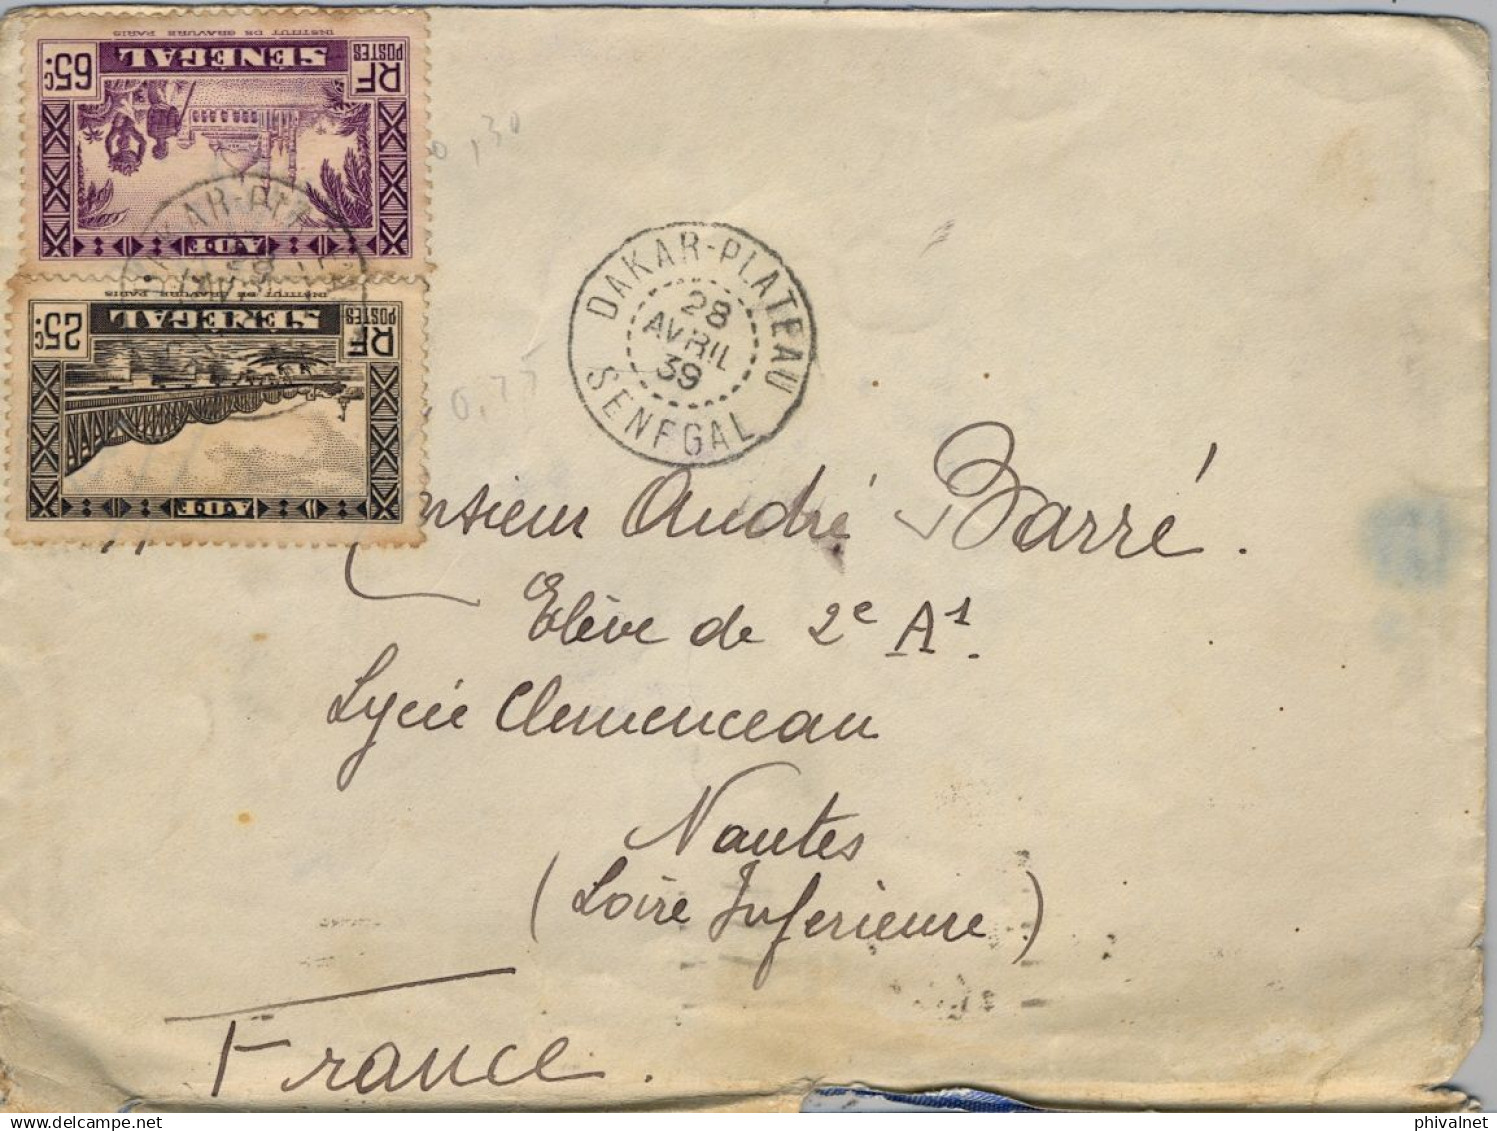 INSTITUT DE GRAVURE PARIS
SÉNÉGAL
65c
RF
POSTES
AOF
INSTITUT DE GRAVURE PARIS
SÉNÉGAL
25c
RF
POSTES
AOF
DAKAR-PLATEAU
28
AVRIL
39
SENEGAL
0,77
Monsieur André Barré.
Elève de 2e A1.
Lycée Clemenceau
Nantes
(Loire Inferieure)
France.
phivalnet